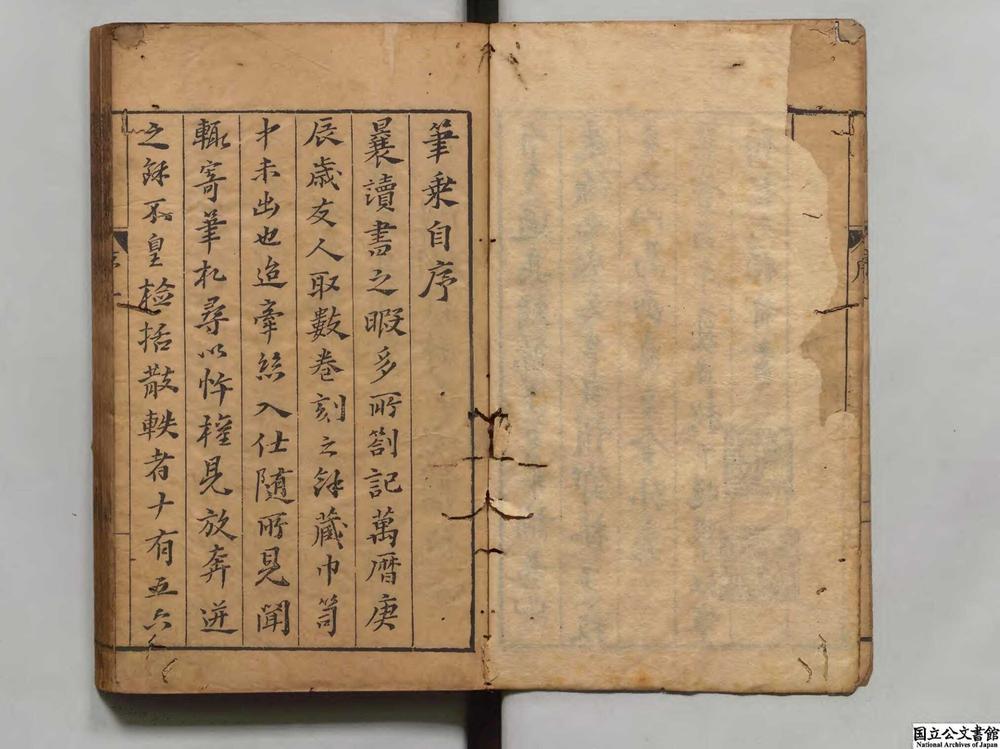 筆乗自序
曩讀書之暇多所劄記萬曆庚
辰歲友人取數卷刻之餘藏巾笥
中未出也迨牽絲入仕随所見聞
輒寄筆札尋以忤權見放奔迸
之餘不皇檢括散軼者十有五六
序
国立公文書館
National Archives of Japan